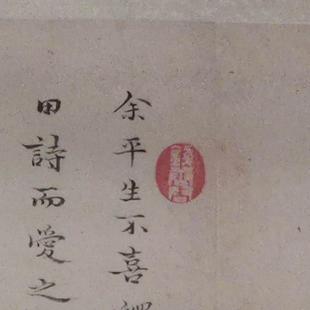 余平生不喜
田詩而愛之